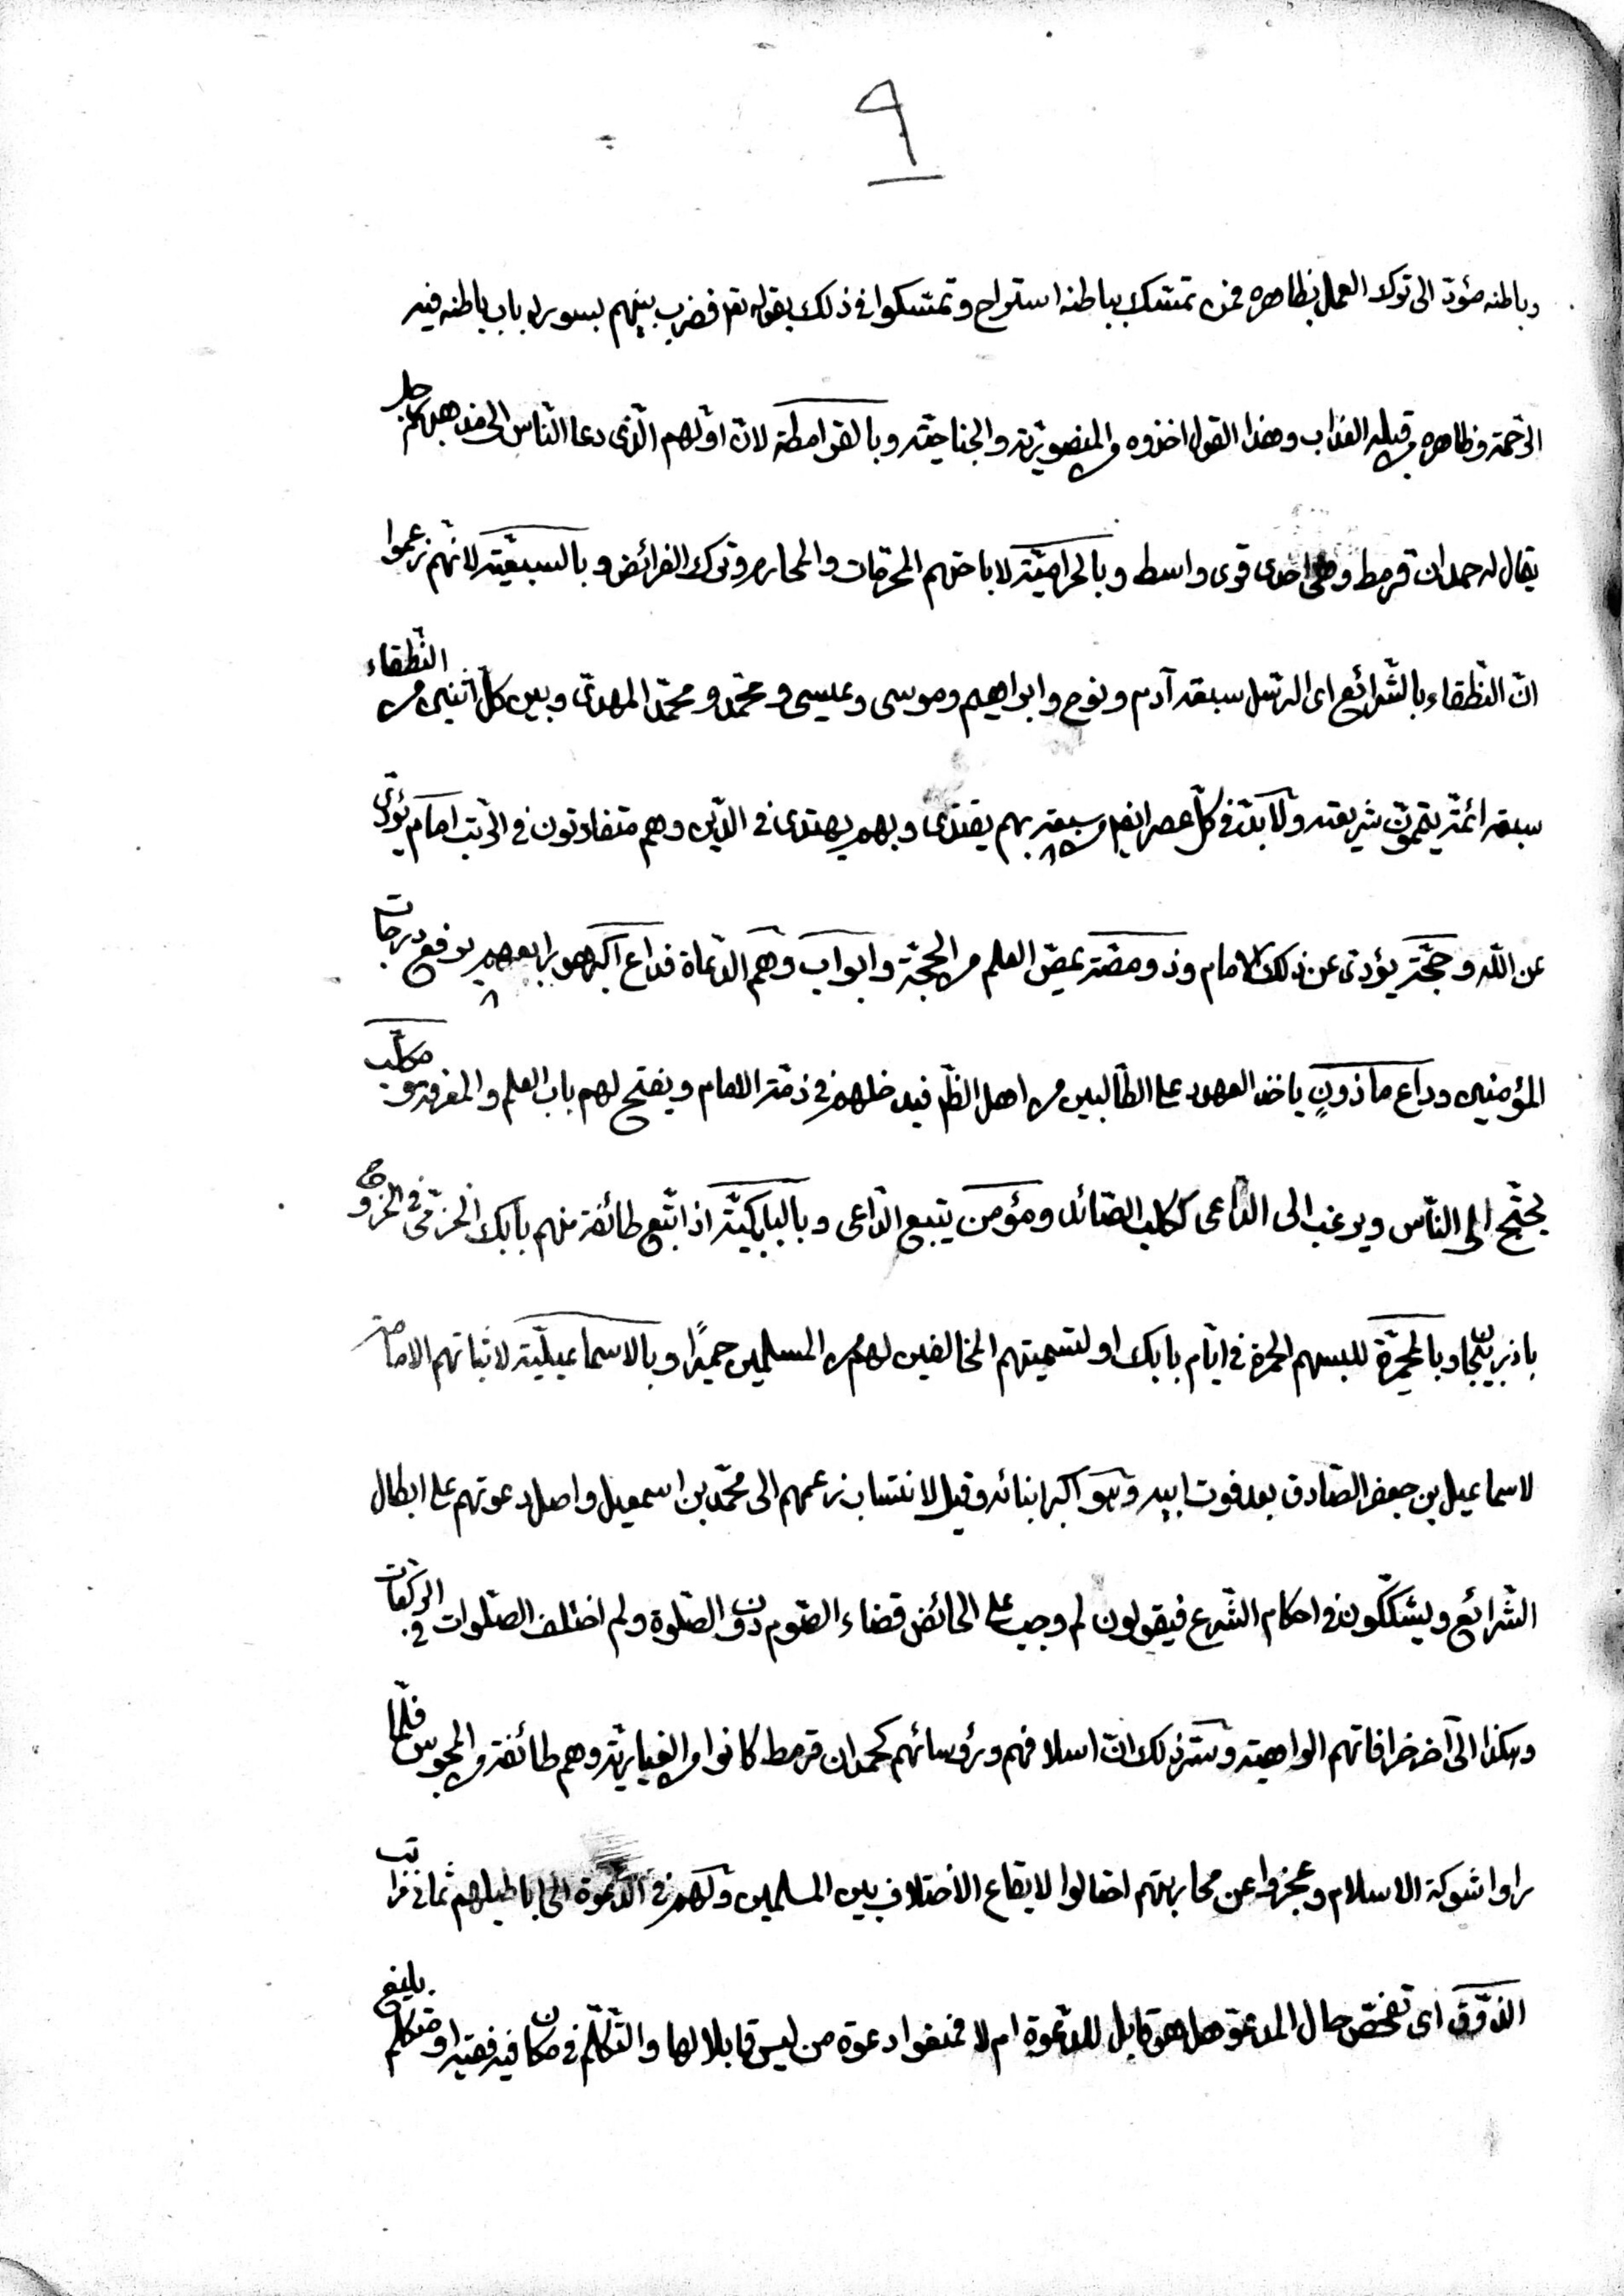 ٩
وباطنه مؤدّ الى ترك العمل بظاهره فمن تمسّك بباطنه استراح وتمسّكوا في ذلك بقوله تعم فضرب بينهم بسور له باب باطنه فيه
الرّحمة وظاهره من قبله العذاب وهذا القول اخذوه من المنصوريّة والجناحيّة وبالقرامطة لانّ اوّلهم الّذى دعا النّاس الى مذهبهم رجل
يقال له حمدان قرمط وهى احدى قرى واسط وبالحراميّة لاباحتهم المحرّمات والمحارم وترك الفرائض وبالسبعيّة لانّهم زعموا
انّ النّطقاء بالشّرائع اى الرّسل سبعة آدم ونوح وابراهيم وموسى وعيسى و محمّد و محمّد المهدىّ وبين كلّ اثنين من النّطقاء
سبعة ائمّة يتمّون شريعته ولا بدّ في كلّ عصر ايضا من سبعة بهم يقتدى وبهم يهتدى في الدّين وهم متفاوتون في الرّتب امام يؤدّى
عن اللّه وحجّة يؤدى عن ذلك الامام وذو مصّة يمصّ العلم من الحجّة وابواب وهم الدّعاة فداع اكبر هو رابعهم يرفع درجات
المؤمنين وداع ماذون ياخذ العهود على الطّالبين من اهل الظّم فيدخلهم في ذمّة الامام ويفتح لهم باب العلم والمعرفة و مكلّب
يحتجّ الى النّاس ويرغب الى الدّاعى ككلب الصّائد ومؤمن يتبع الدّاعى وبالبابكيّة اذ اتّبع طائفة منهم بابك الخرّمى في الخروج
باذربيجان وبالمحمّرة للبسهم الحمرة في ايّام بابك او لتسميتهم المخالفين لهم من المسلمين حميرًا وبالاسماعيليّة لاثباتهم الامامة
لاسماعيل بن جعفر الصّادق بعد فوت ابيه وهو اكبر ابنائه وقيل لانتساب زعمهم الى محمّد بن اسمعيل واصل دعوتهم على ابطال
الشّرائع ويشكّكون في احكام الشّرع فيقولون لم وجب على الحائض قضاء الصّوم دون الصّلوة ولم اختلف الصّلوات في الرّكعات
وهكذا الى آخر خرافاتهم الواهية وسرّ ذلك انّ اسلافهم ورؤسائهم كحمدان قرمط كانوا من الغياريّة وهم طائفة من المجوس فلمّا
راوا شوكة الاسلام وعجزوا عن محاربتهم احتالوا لايقاع الاختلاف بين المسلمين ولهم في الدّعوة الى اباطيلهم ثمانى مراتب
الذّوق اى تفحّص حال المدعوّ هل هو قابل للدّعوة ام لا فمنعوا دعوة من ليس قابلا لها والتكلّم في مكان فيه فقيه او متكلّم بليغ